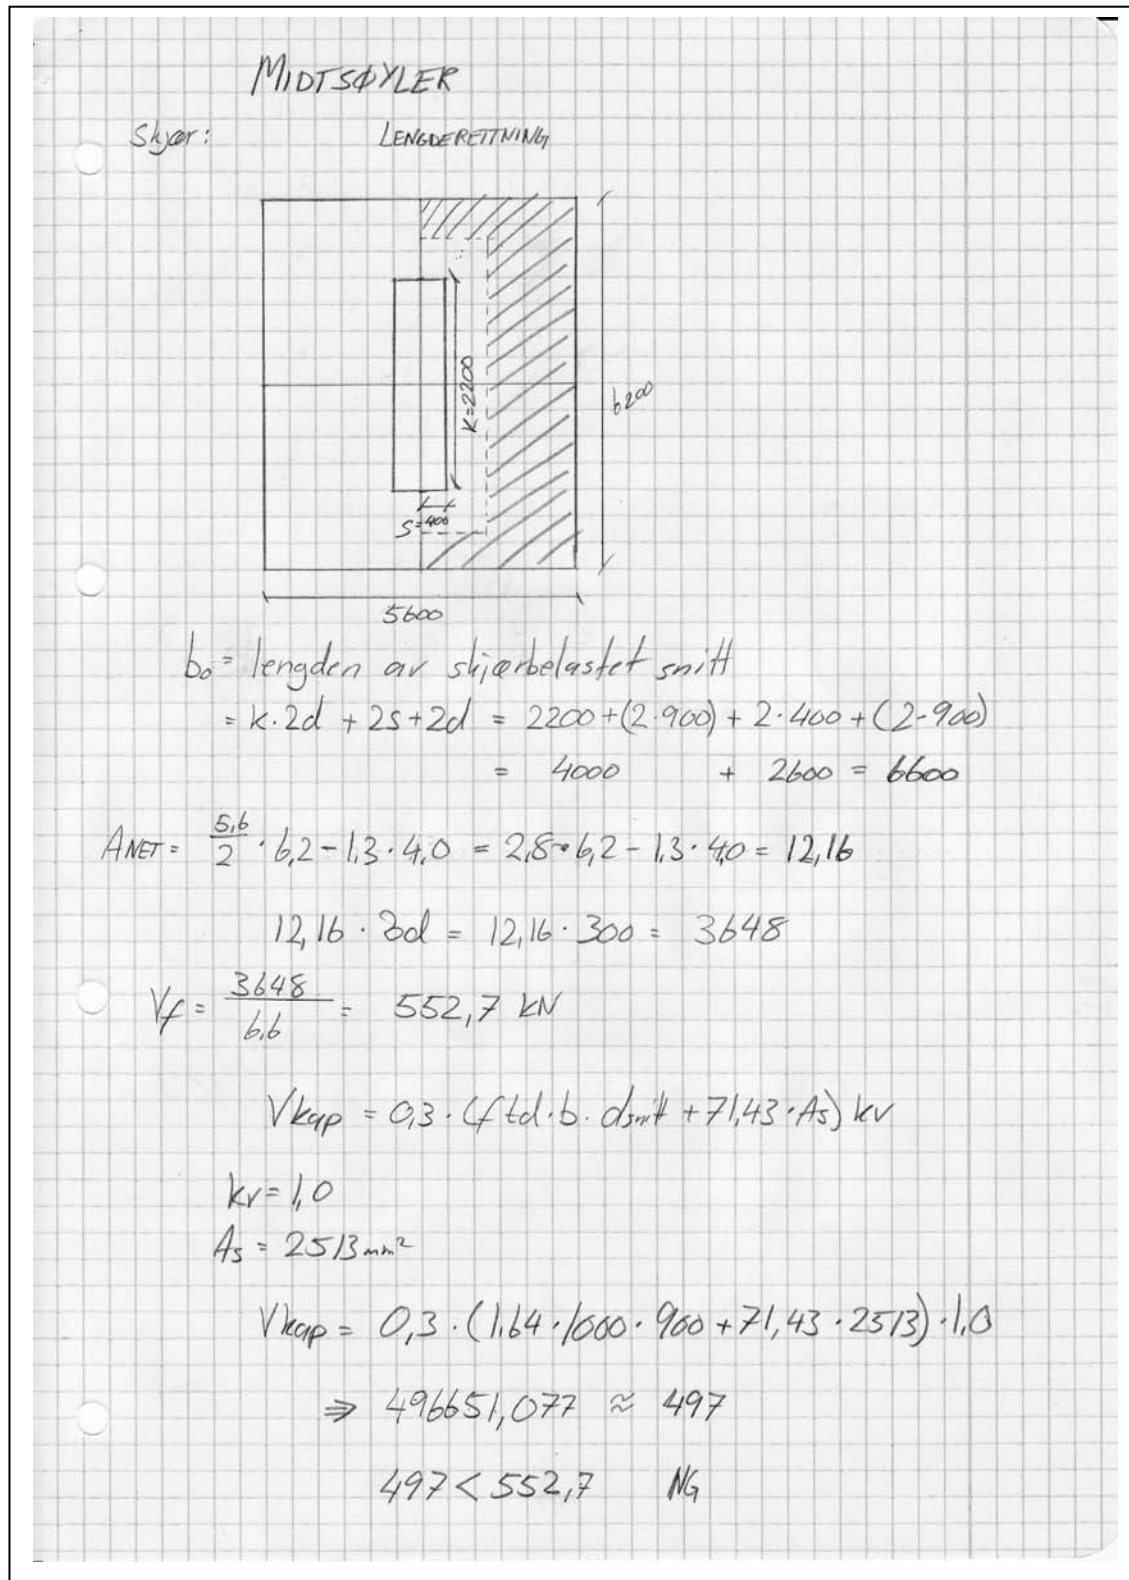 MIDTSØYLER
Skjær: LENGDERETTNING
K=2200
6200
S=400
5600
b₀ = lengden av skjærbelastet snitt
= K·2d + 2s + 2d = 2200 + (2·900) + 2·400 + (2-900)
= 4000 + 2600 = 6600
ANET = 5,6/2 · 6,2 - 1,3 · 4,0 = 2,8 · 6,2 - 1,3 · 4,0 = 12,16
12,16 · 3d = 12,16 · 300 = 3648
Vf = 3648/6,6 = 552,7 kN
Vkap = 0,3 · (ftd · b · dsnitt + 71,43 · As) kv
kv = 1,0
As = 2513 mm²
Vkap = 0,3 · (1,64 · 1000 · 900 + 71,43 · 2513) · 1,0
⇒ 496651,077 ≈ 497
497 < 552,7 NG